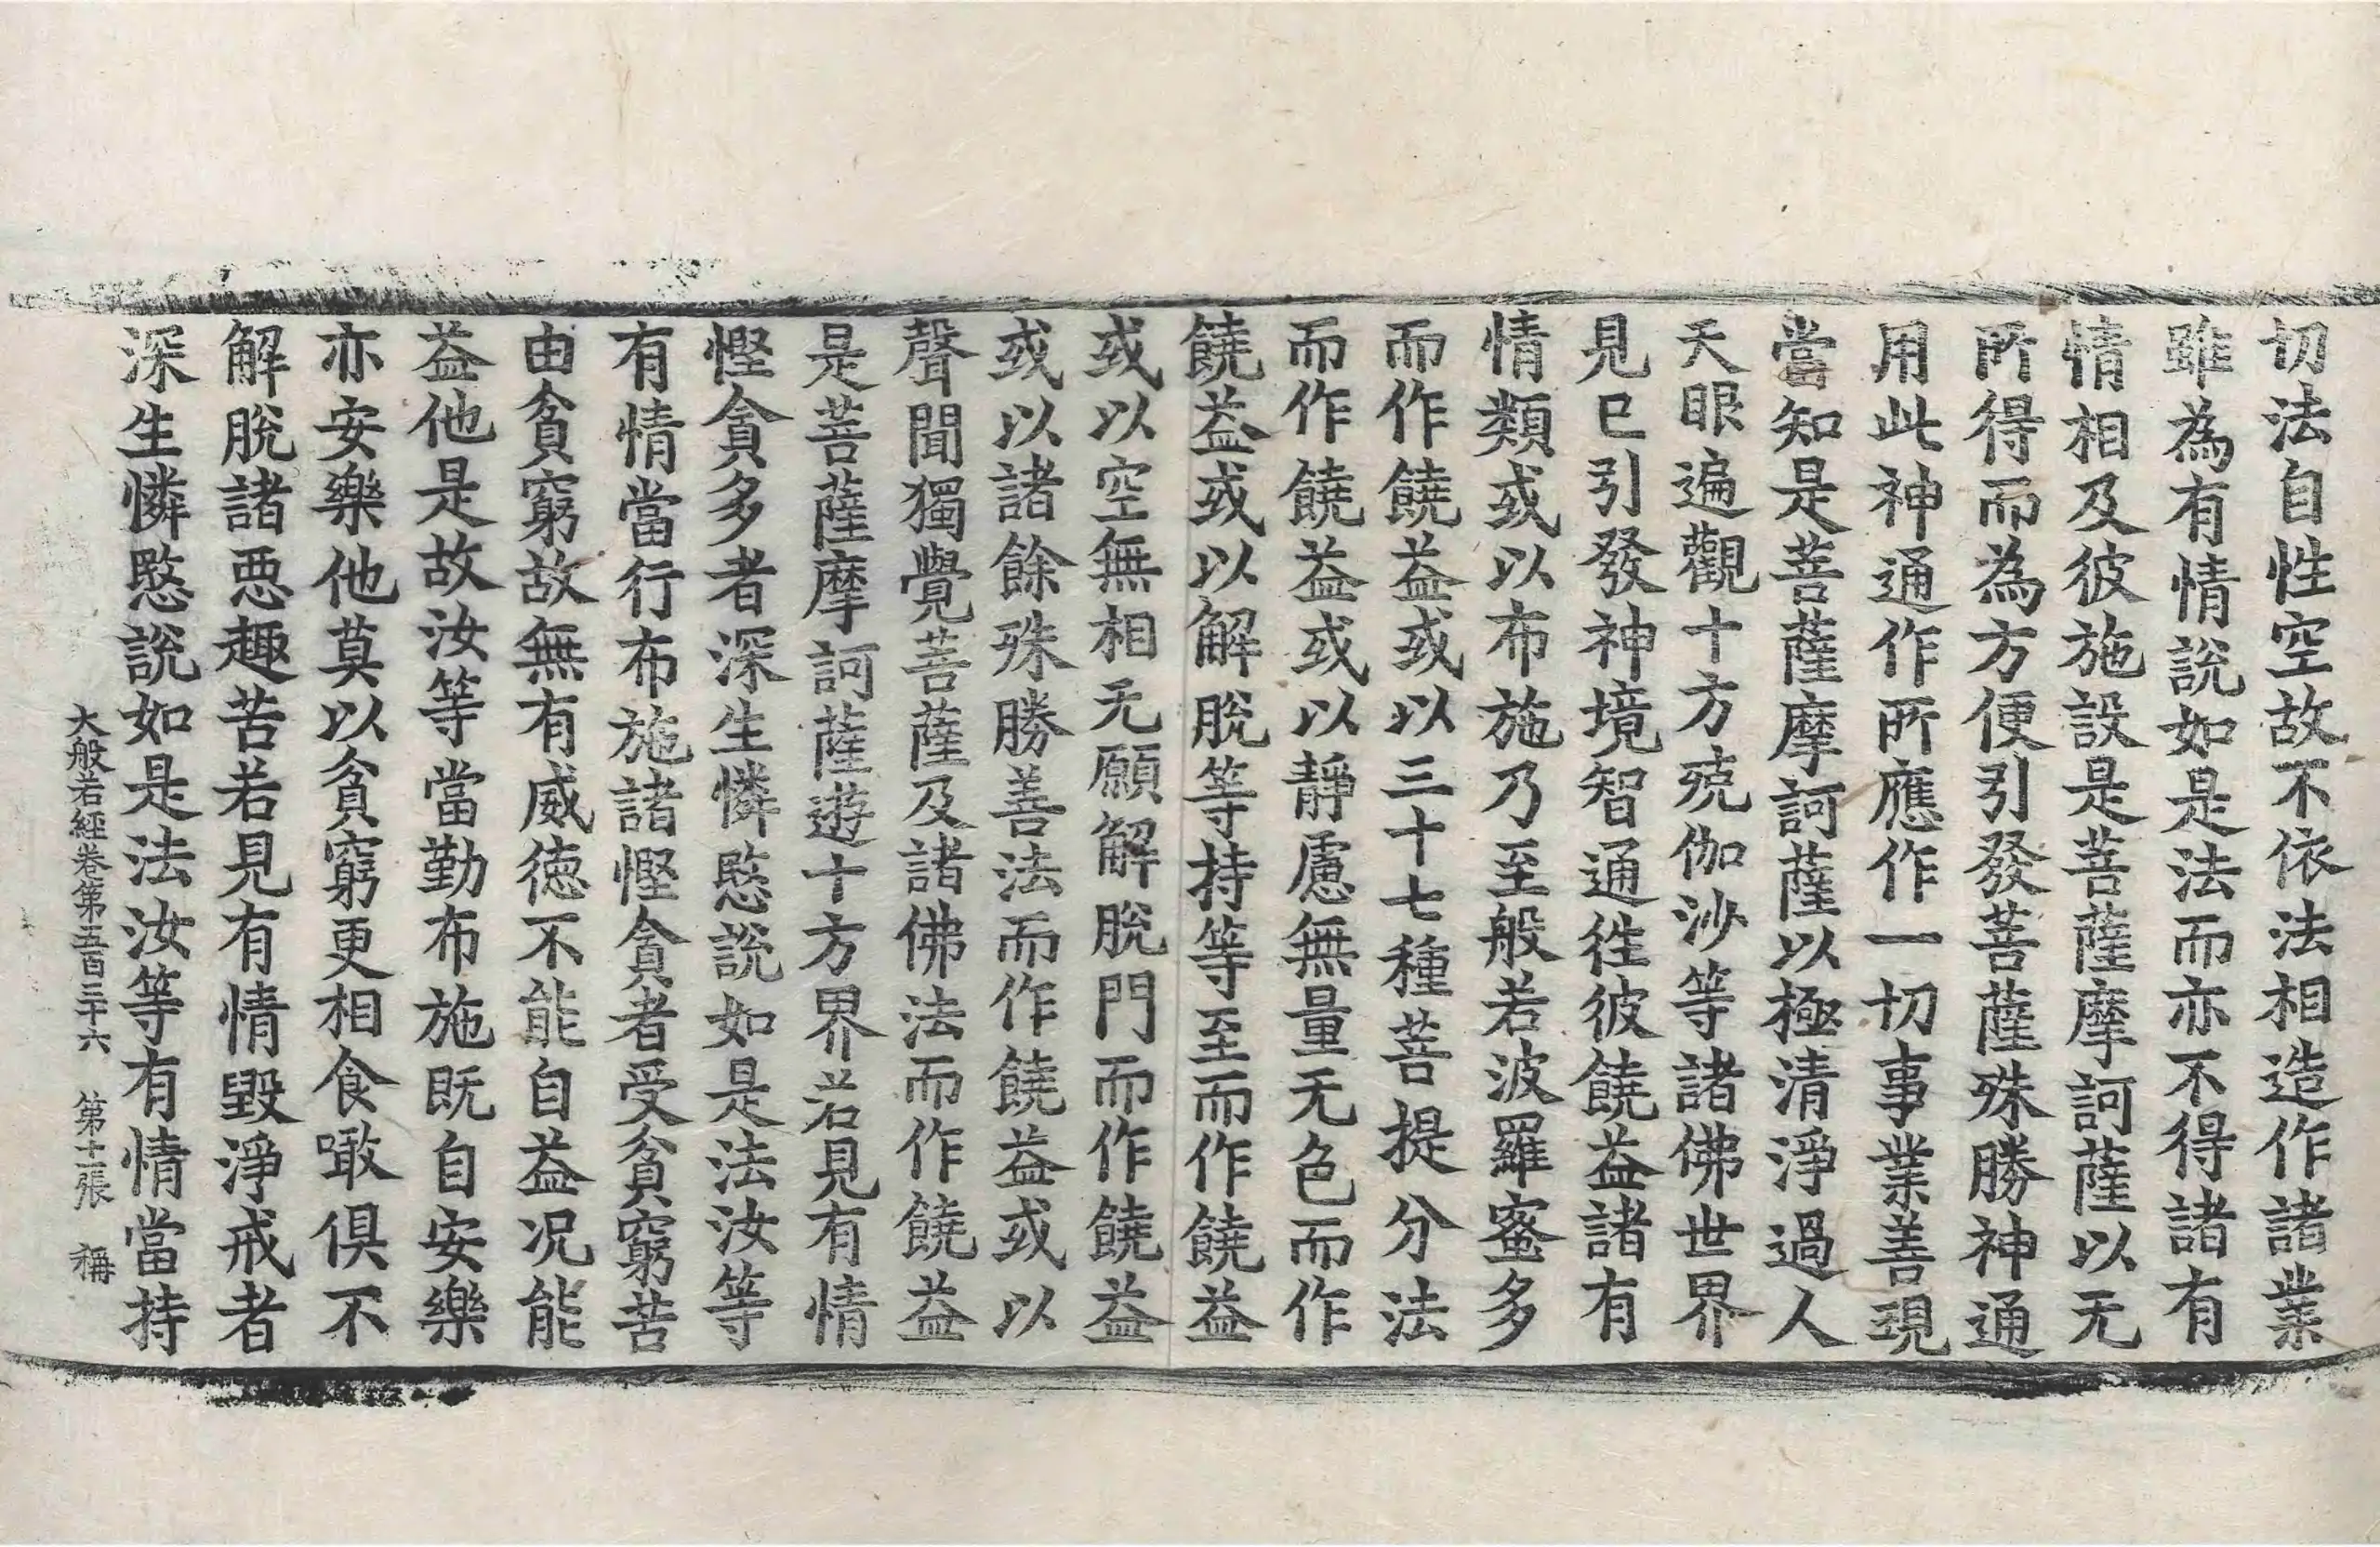 切法自性空故不依法相造作諸業
雖為有情說如是法而亦不得諸有
情相及彼施設是菩薩摩訶薩以无
所得而為方便引發菩薩殊勝神通
用此神通作所應作一切事業善現
當知是菩薩摩訶薩以極清淨過人
天眼遍觀十方殑伽沙等諸佛世界
見已引發神境智通徃彼饒益諸有
情類或以布施乃至般若波羅蜜多
而作饒益或以三十七種菩提分法
而作饒益或以靜慮無量无色而作
饒益或以解脫等持等至而作饒益
或以空無相无願解脫門而作饒益
或以諸餘殊勝善法而作饒益或以
聲聞獨覺菩薩及諸佛法而作饒益
是菩薩摩訶薩遊十方界若見有情
慳貪多者深生憐愍說如是法汝等
有情當行布施諸慳貪者受貧窮苦
由貧窮故無有威德不能自益况能
益他是故汝等當勤布施既自安樂
亦安樂他莫以貧窮更相食噉俱不
解脫諸惡趣苦若見有情毀淨戒者
深生憐愍說如是法汝等有情當持
大般若經卷第五百三十六 第十一張 稱